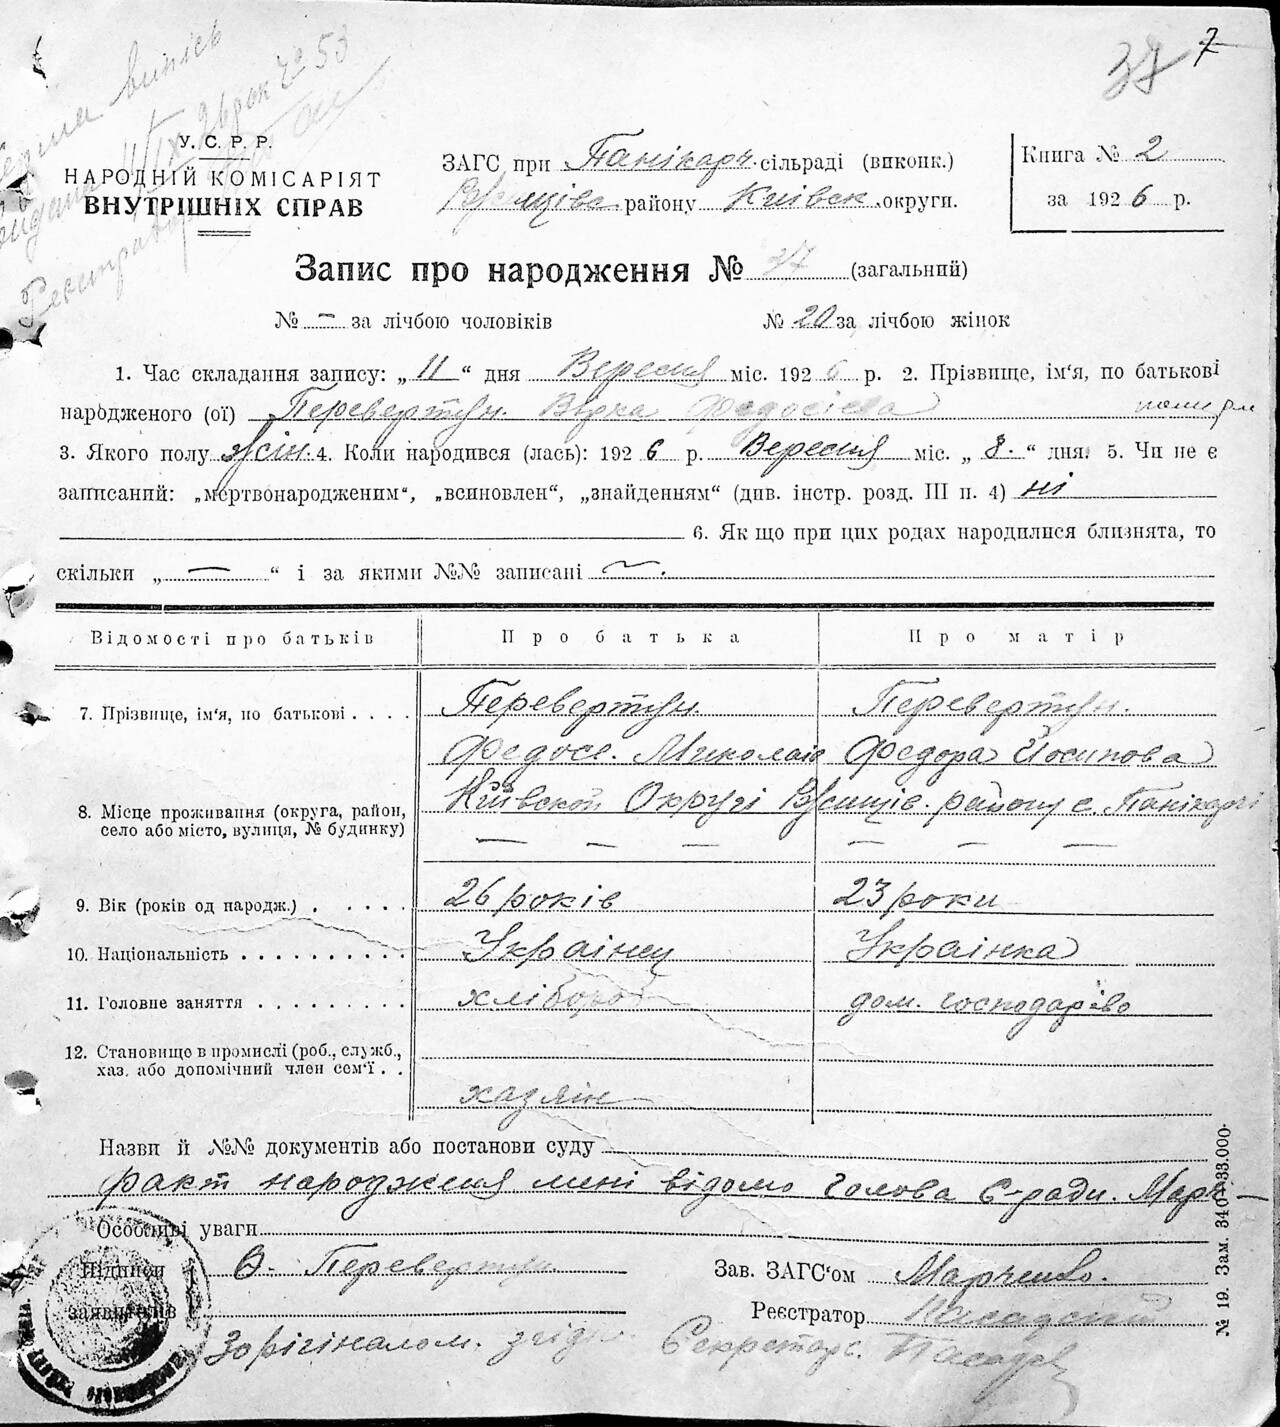 37 7
У. С. Р. Р.
НАРОДНІЙ КОМІСАРІЯТ
ВНУТРІШНІХ СПРАВ
ЗАГС при Панікарч. сільраді (виконк.)
Ржищівс. району Київск. округи.
Книга № 2
за 1926 р.
Запис про народження № 37 (загальний)
№ — за лічбою чоловіків № 20 за лічбою жінок
1. Час складання запису: „11“ дня Вересня міс. 1926 р. 2. Прізвище, ім'я, по батькові
народженого (ої) Перевертун. Вірка Федосієва
3. Якого полу жін. 4. Коли народився (лась): 1926 р. Вересня міс. „8.“ дня. 5. Чи не є
записаний: „мертвонародженим“, „всиновлен“, „знайденням“ (див. інстр. розд. III п. 4) ні
6. Як що при цих родах народилися близнята, то
скільки „—“ і за якими №№ записані ~.
Відомості про батьків Про батька Про матір
7. Прізвище, ім'я, по батькові . . . . Перевертун. Перевертун.
Федос. Миколаїв Федора Йосипова
8. Місце проживання (округа, район, село або місто, вулиця, № будинку) Київскої Округі Ржищів. району с. Панікарчі
— — — — — —
9. Вік (років од народж.) . . . . . 26 років 23 роки
10. Національність . . . . . . . . . . Украінец Украінка
11. Головне заняття . . . . . . . . . хлібороб дом. господарство
12. Становище в промислі (роб., служб.,
хаз. або допомічний член сем'ї . .
хазяін
Назви й №№ документів або постанови суду
факт народженя мені відомо Голова С-ради. Марч—
Особливі уваги
Підписи Ф. Перевертун Зав. ЗАГС'ом Марченко.
заявителів Реєстратор
З орігіналом. згідно. Секретарь.
№ 19. Зам. 340—33.000.